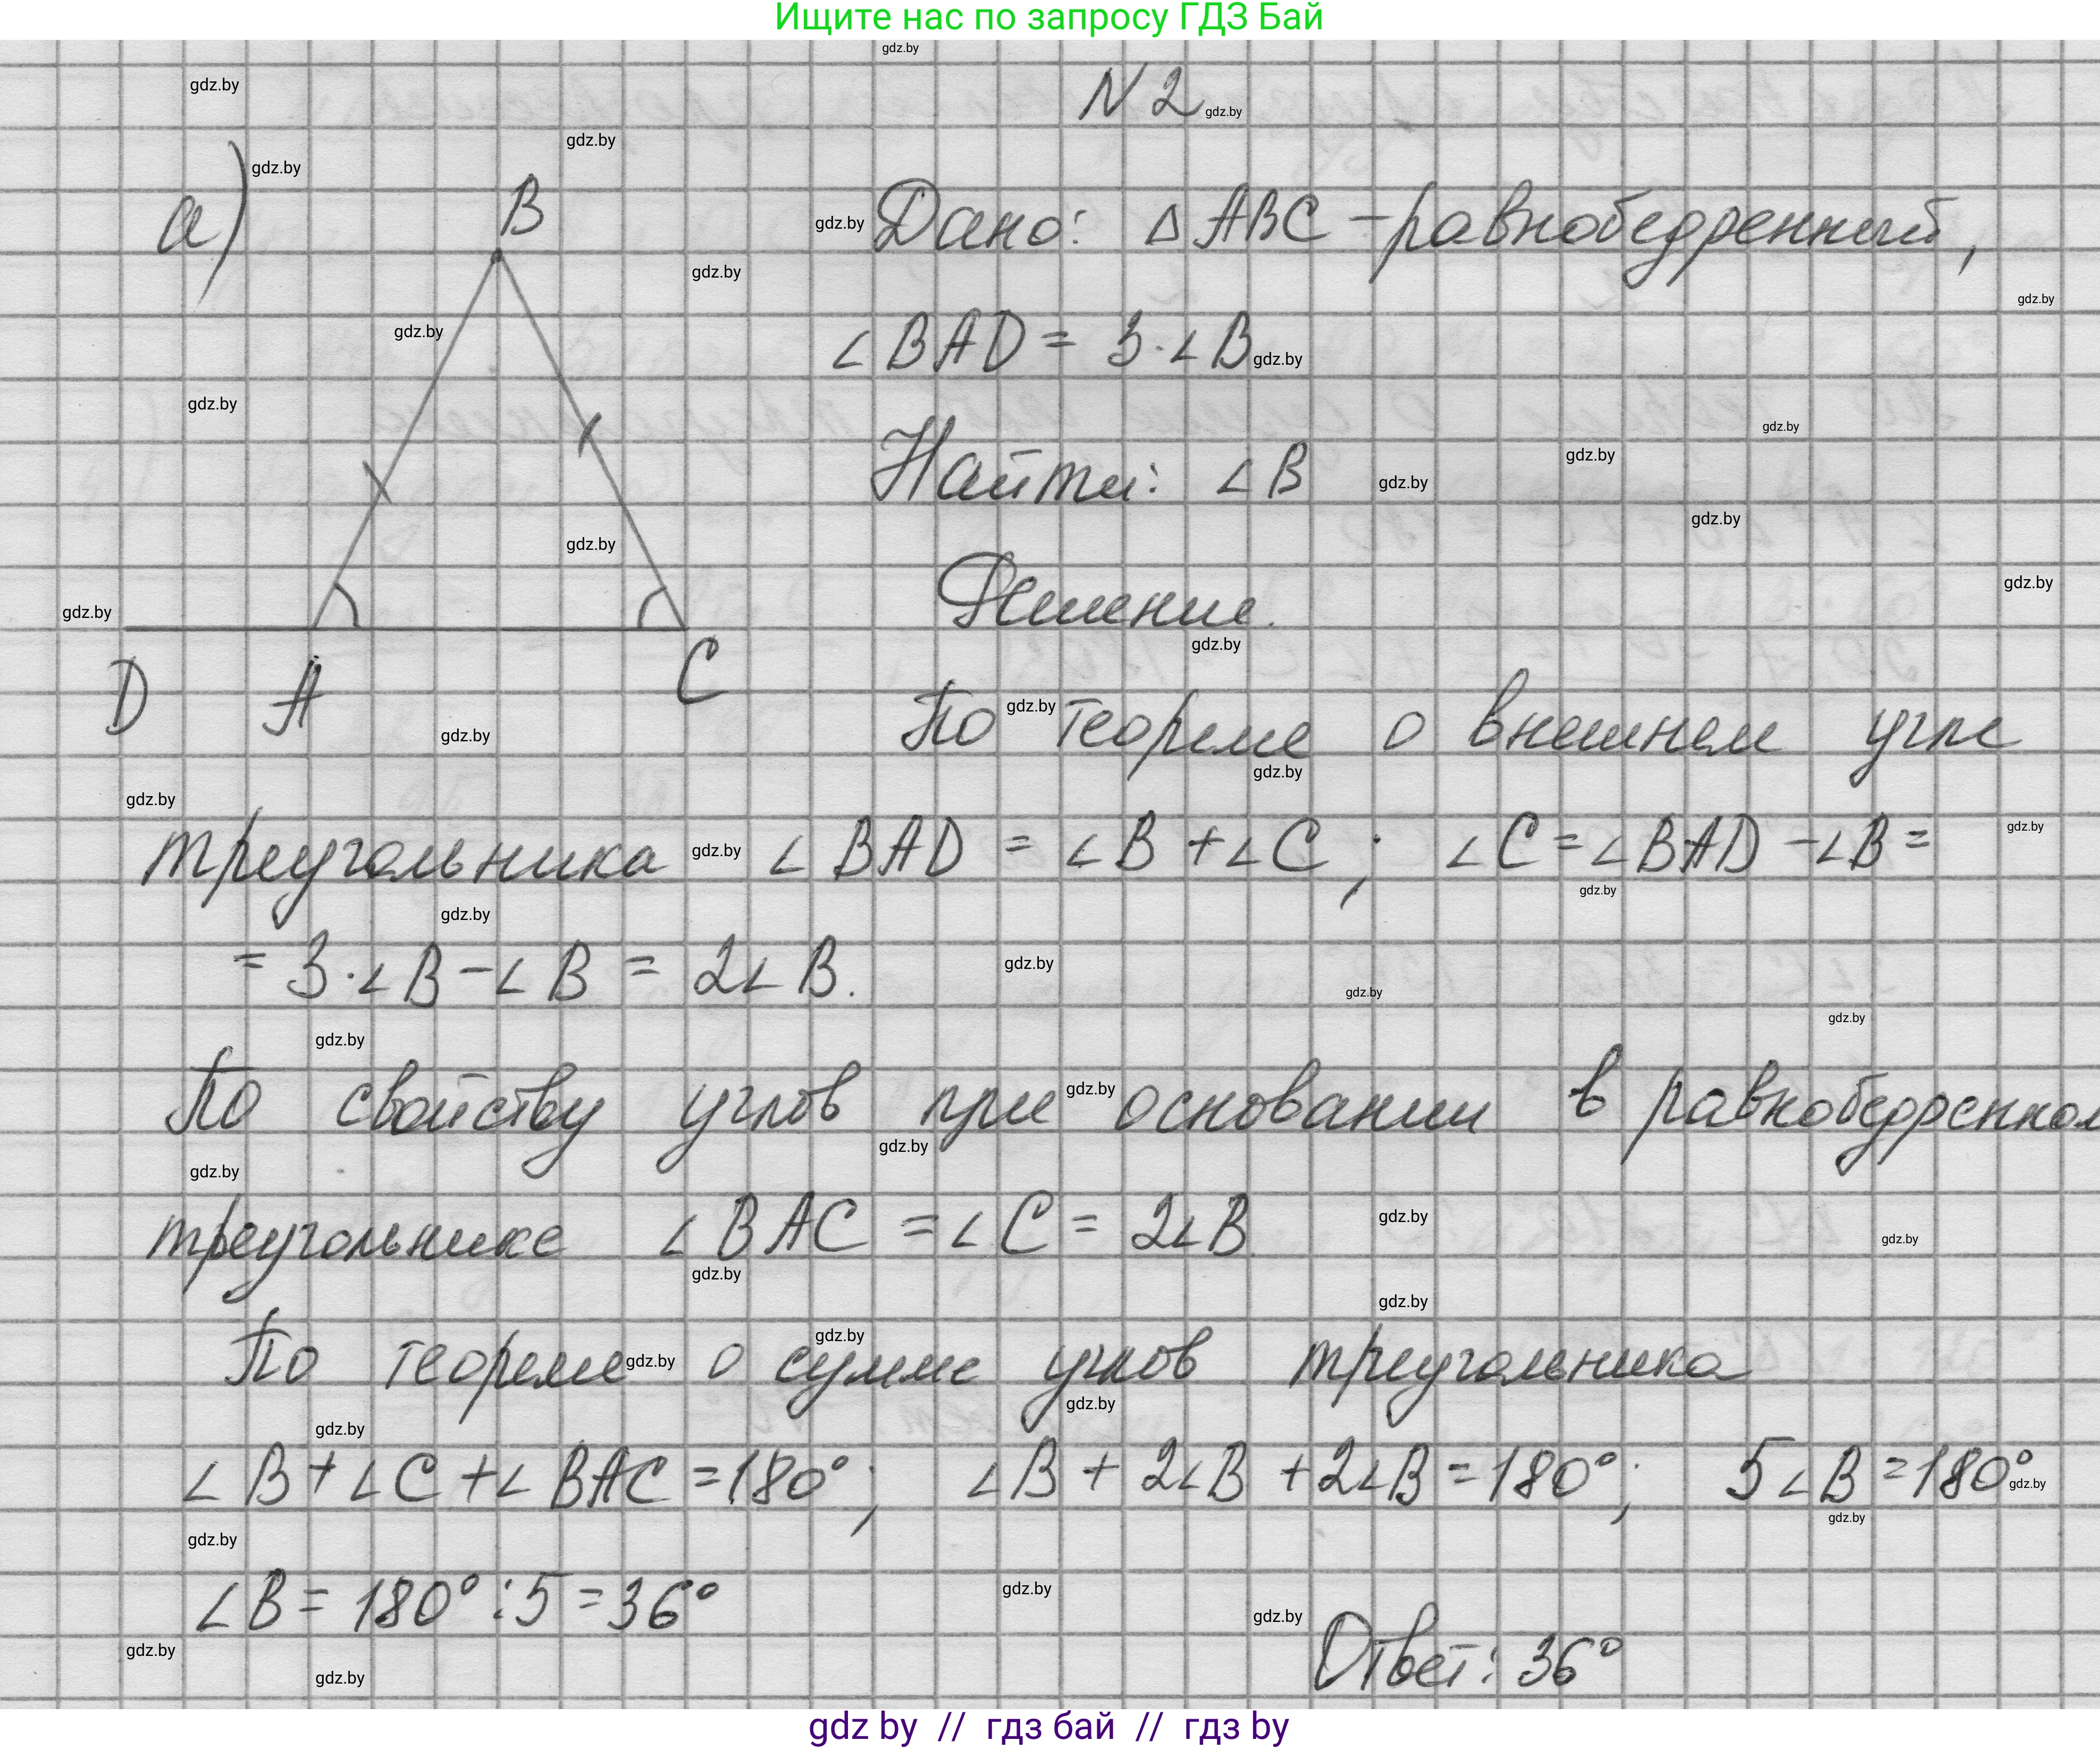 Ищите нас по запросу ГДЗ Бай
N 2
а)
B
Дано: △ABC – равнобедренный,
∠BAD = 3·∠B
Найти: ∠B
Решение.
D A C
По теореме о внешнем угле
треугольника ∠BAD = ∠B + ∠C ; ∠C = ∠BAD – ∠B =
= 3·∠B – ∠B = 2∠B.
По свойству углов при основании в равнобедренном
треугольнике ∠BAC = ∠C = 2∠B.
По теореме о сумме углов треугольника
∠B + ∠C + ∠BAC = 180° ; ∠B + 2∠B + 2∠B = 180° ; 5∠B = 180°
∠B = 180° : 5 = 36°
Ответ: 36°
gdz by // гдз бай // гдз by